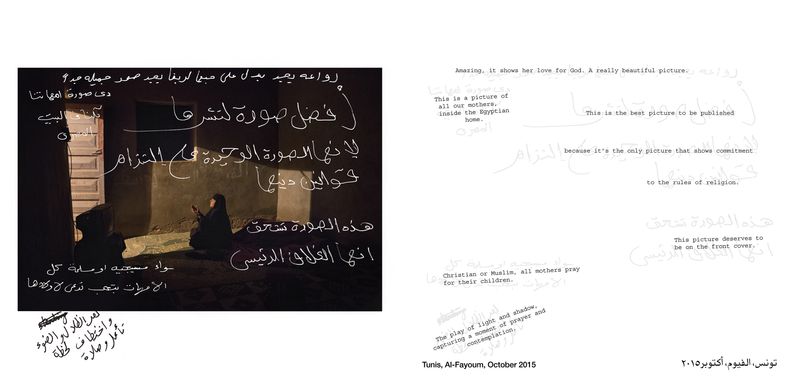 بجد بتدل على حبها لربنا بجد صور جميله جدا
دى صورة امهاتنا
البيت
المصرى
أفضل صورة لنشرها
لانها الصورة الوحيدة إلتزام
قوانين دينها
هذه الصورة تستحق
انها الغلاف الرئيسى
سواء مسيحيه او مسلمة كل
الأمهات تدعى لاولادها
الضوء
واختطاف لحظة
تأمل وصلاة
Amazing, it shows her love for God. A really beautiful picture.
This is a picture of
all our mothers,
inside the Egyptian
home.
This is the best picture to be published
because it's the only picture that shows commitment
to the rules of religion.
This picture deserves to
be on the front cover.
Christian or Muslim, all mothers pray
for their children.
The play of light and shadow,
capturing a moment of prayer and
contemplation.
Tunis, Al-Fayoum, October 2015
تونس، الفيوم، أكتوبر ٢٠١٥